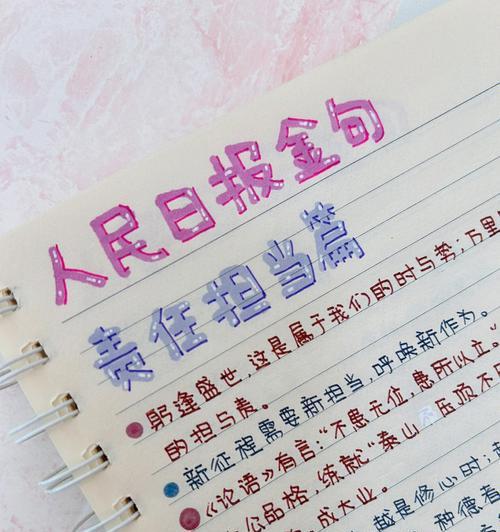 人民日报金句
责任担当篇
躬逢盛世,这是属于我们的时与势;万里
的担与责。
新征程需要新担当,呼唤新作为。
《论语》有言:“不患无位,患所以立。”
心品格,练就“泰山 压顶不
成大业。
越是修心时;
种德者